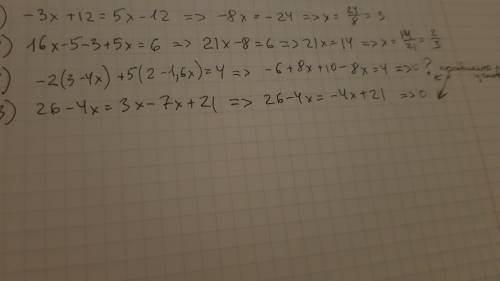 ) -3x+12=5x-12 => -8x=-24 => x=24/8=3
) 16x-5-3+5x=6 => 21x-8=6 => 21x=14 => x=14/21=2/3
) -2(3-4x)+5(2-1,6x)=4 => -6+8x+10-8x=4 => 0?
3) 26-4x=3x-7x+21 => 26-4x=-4x+21 => 0